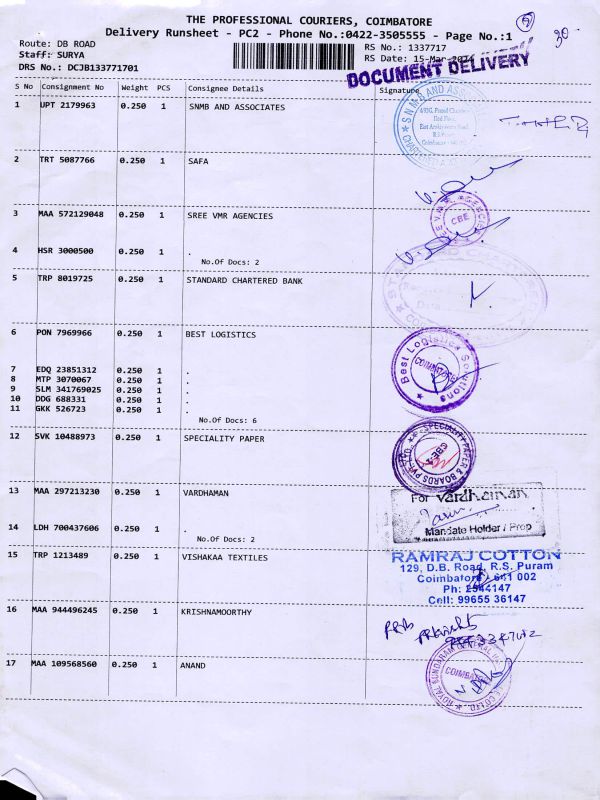 THE PROFESSIONAL COURIERS, COIMBATORE
Delivery Runsheet - PC2 - Phone No.:0422-3505555 - Page No.:1
Route: DB ROAD
RS No.: 1337717
Staff: SURYA
RS Date: 15-Mar-2024
DRS No.: DCJB133771701
DOCUMENT DELIVERY
S No Consignment No Weight PCS Consignee Details Signature
1 UPT 2179963 0.250 1 SNMB AND ASSOCIATES
2 TRT 5087766 0.250 1 SAFA
3 MAA 572129048 0.250 1 SREE VMR AGENCIES
CBE
4 HSR 3000500 0.250 1 .
No.Of Docs: 2
5 TRP 8019725 0.250 1 STANDARD CHARTERED BANK
6 PON 7969966 0.250 1 BEST LOGISTICS
Best Logistics Solutions
COIMBATORE
7 EDQ 23851312 0.250 1 .
8 MTP 3070067 0.250 1 .
9 SLM 341769025 0.250 1 .
10 DDG 688331 0.250 1 .
11 GKK 526723 0.250 1 .
No.Of Docs: 6
12 SVK 10488973 0.250 1 SPECIALITY PAPER
SPECIALITY PAPER & BOARDS PVT. LTD.
13 MAA 297213230 0.250 1 VARDHAMAN
For Vardhaman
Mandate Holder / Prop
14 LDH 700437606 0.250 1
No.Of Docs: 2
15 TRP 1213489 0.250 1 VISHAKAA TEXTILES
RAMRAJ COTTON
129, D.B. Road, R.S. Puram
Coimbatore - 641 002
Ph: 2544147
Cell: 99655 36147
16 MAA 944496245 0.250 1 KRISHNAMOORTHY
17 MAA 109568560 0.250 1 ANAND